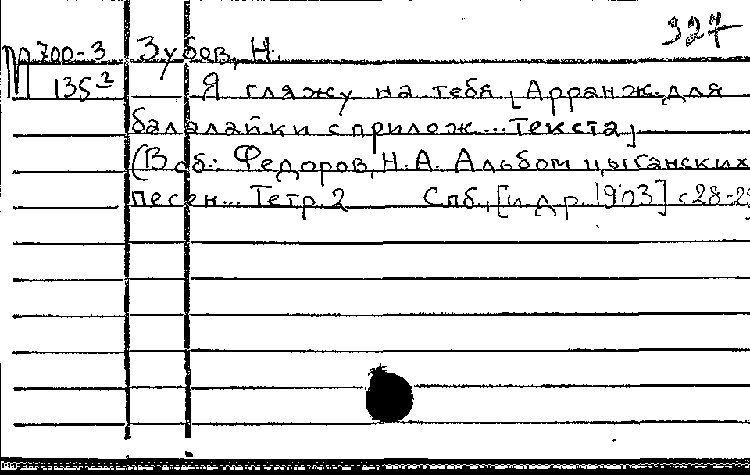 327
М 700-3 Зубов, Н.
135² Я гляжу на тебя [Арранж. для
балалайки с прилож... текста]
(В сб.: Федоров, Н. А. Альбом цыганских
песен... Тетр. 2 Спб., [ц. д. р. 1903] с 28-29